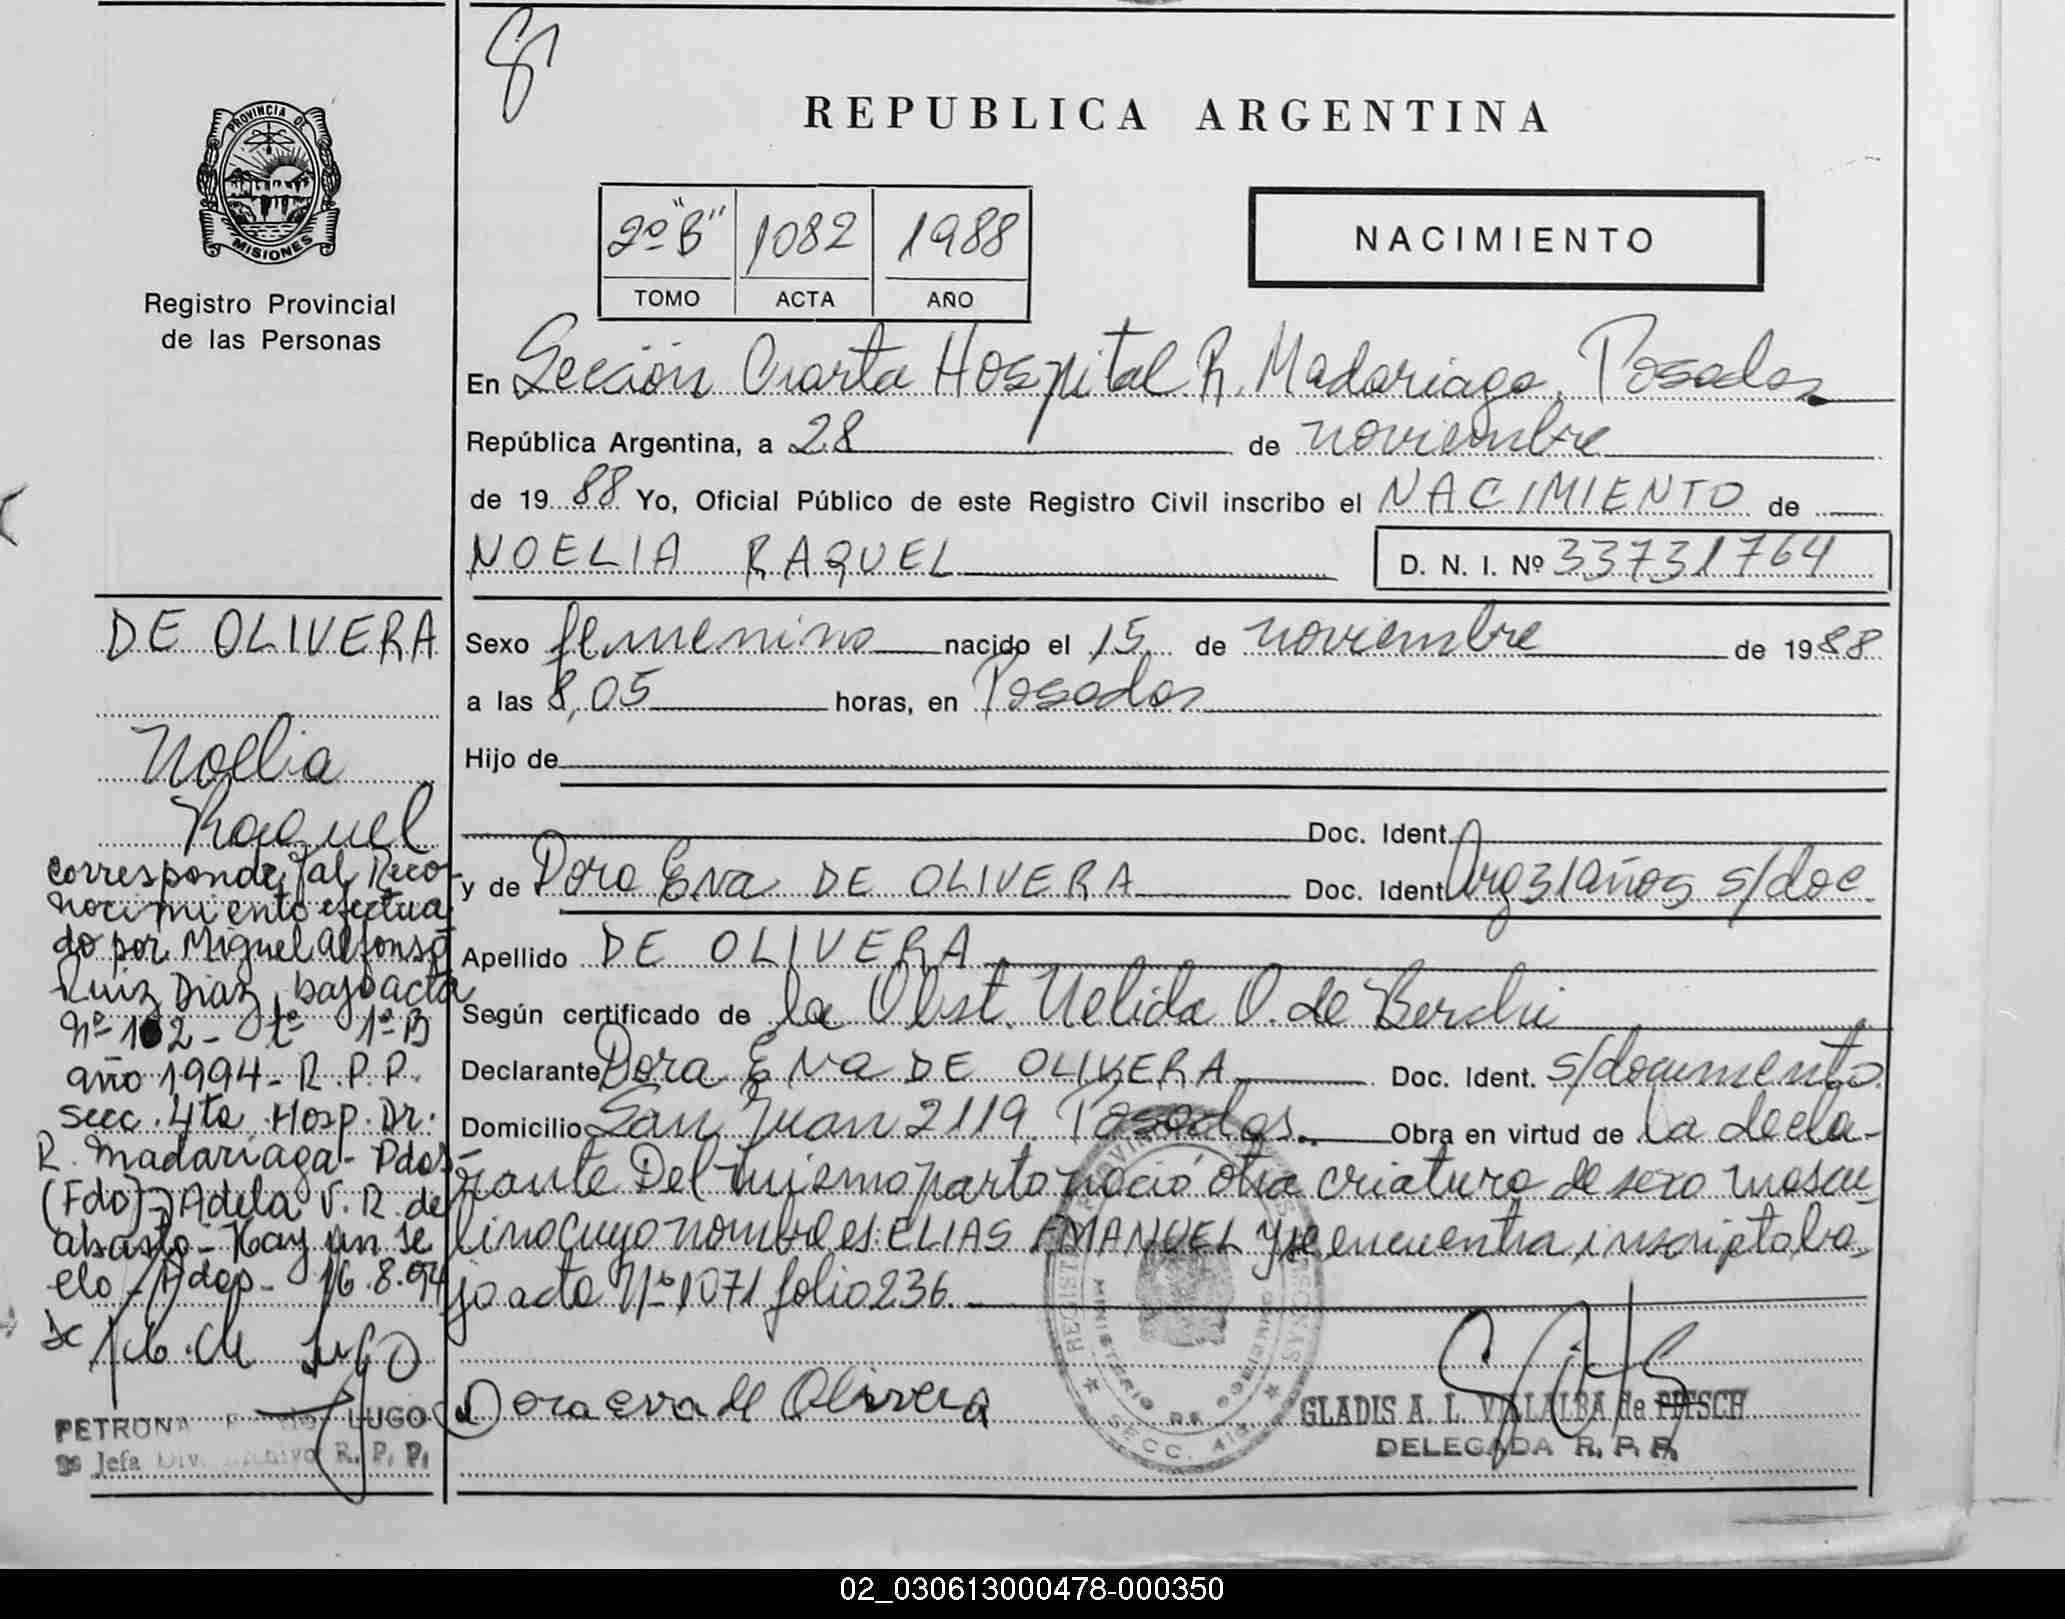 PROVINCIA DE
MISIONES
Registro Provincial
de las Personas
DE OLIVERA
Noelia
Raquel
corresponde al Reco-
nocimiento efectua
do por Miguel Alfonso
Ruiz Diaz, bajo acta
Nº 102 - tº 1º B
año 1994 - R.P.P.
Secc. 4ta Hosp. Dr.
R. Madariaga - Pdas
(Fdo) Adela V. R. de
Hay un se
elo - 16.8.94
LUGO
PETRONA LUGO
Jefa R. P. P.
REPUBLICA ARGENTINA
2º "B" 1082 1988
TOMO ACTA AÑO
NACIMIENTO
En Sección Cuarta Hospital R. Madariaga, Posadas
República Argentina, a 28 de noviembre
de 1988 Yo, Oficial Público de este Registro Civil inscribo el NACIMIENTO de
NOELIA RAQUEL D. N. I. Nº 33731764
Sexo femenino nacido el 15 de noviembre de 1988
a las 8,05 horas, en Posadas
Hijo de
Doc. Ident.
y de Dora Eva DE OLIVERA Doc. Ident Arg 31 años s/doc
Apellido DE OLIVERA
Según certificado de la Obst. Nelida O. de
Declarante Dora Eva DE OLIVERA Doc. Ident. s/documento
Domicilio San Juan 2119 Posadas Obra en virtud de la decla-
rante Del mismo parto nació otra criatura de sexo mascu
lino cuyo nombre es ELIAS EMANUEL y se encuentra inscripto ba
jo acta Nº 1071 folio 236.
Dora eva de Olivera
MINISTERIO DE GOBIERNO
SECC. 4ta.
GLADIS A. L. VILLALBA de PIETSCH
DELEGADA R. P. P.
02_030613000478-000350